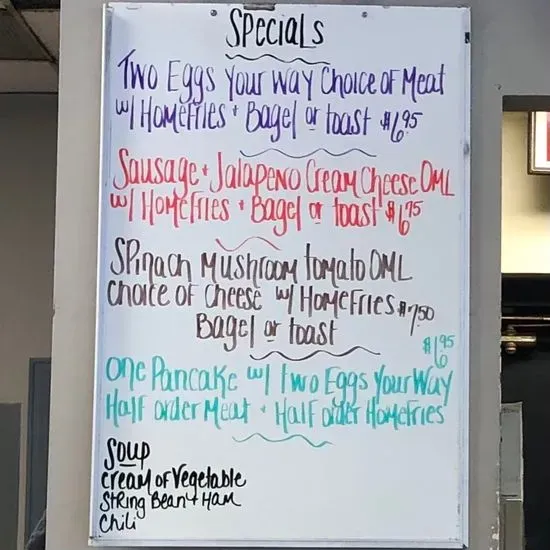 Specials
Two Eggs Your Way Choice of Meat
w/ HomeFries + Bagel or toast $6.95
Sausage + Jalapeno Cream Cheese OML
w/ HomeFries + Bagel or toast $6.75
Spinach Mushroom tomato OML
Choice of Cheese w/ HomeFries $7.50
Bagel or toast
$6.95
One Pancake w/ Two Eggs Your Way
Half order Meat + Half order HomeFries
Soup
Cream of Vegetable
String Bean + Ham
Chili